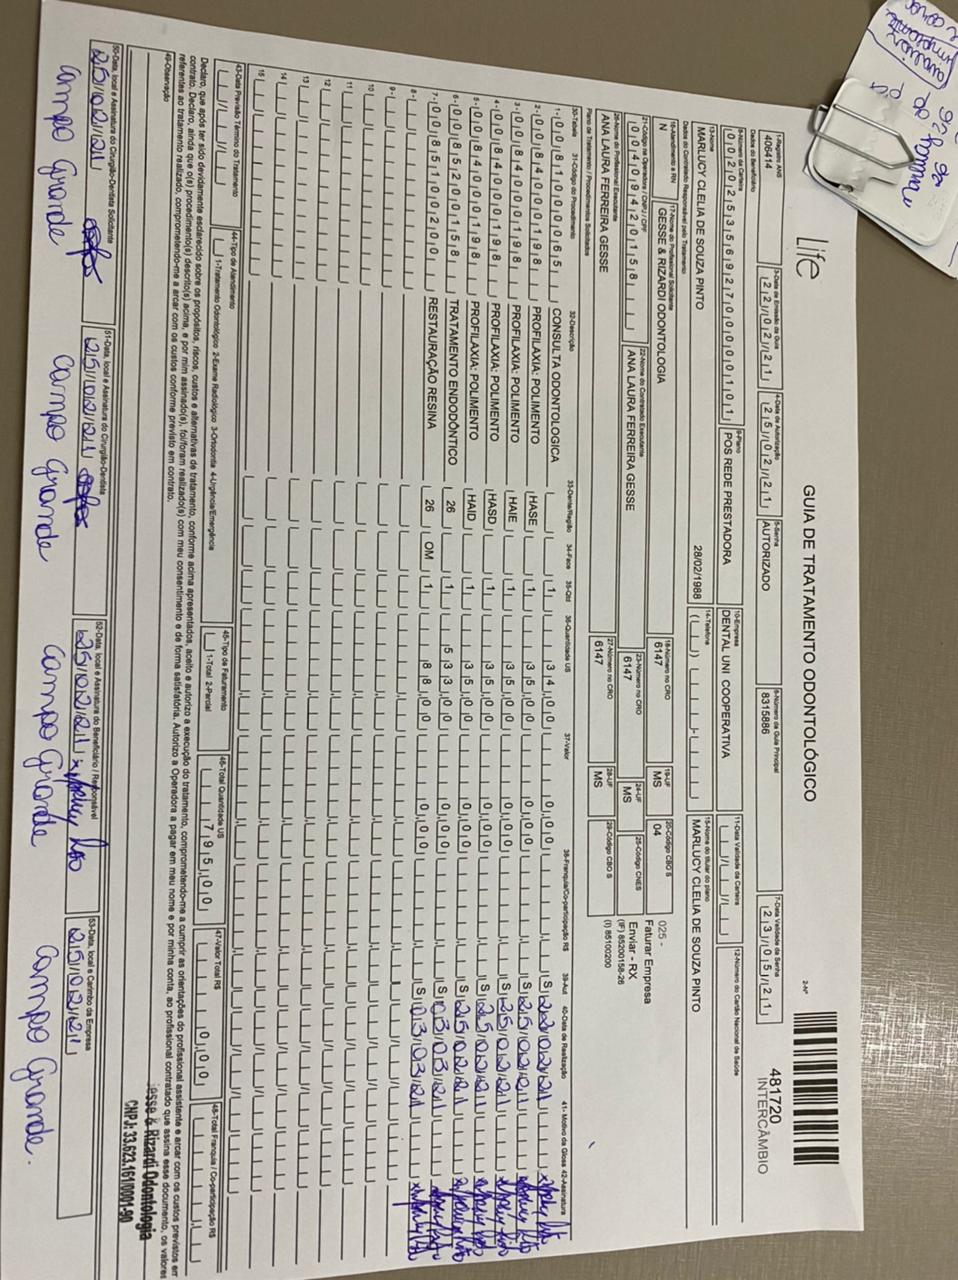 Life
GUIA DE TRATAMENTO ODONTOLÓGICO
2-Nº
481720
INTERCÂMBIO
1-Registro ANS
406414
3-Data de Emissão da Guia
22/02/21
4-Data de Autorização
25/02/21
5-Senha
AUTORIZADO
6-Número da Guia Principal
8315886
7-Data Validade da Senha
23/05/21
Dados do Beneficiário
8-Número da Carteira
00202535692700000101
9-Plano
POS REDE PRESTADORA
10-Empresa
DENTAL UNI COOPERATIVA
11-Data Validade da Carteira
12-Número do Cartão Nacional de Saúde
13-Nome
MARLUCY CLELIA DE SOUZA PINTO
28/02/1988
14-Telefone
15-Nome do titular do plano
MARLUCY CLELIA DE SOUZA PINTO
Dados do Contratado Responsável pelo Tratamento
16-Atendimento a RN
N
17-Nome do Profissional Solicitante
GESSE & RIZARDI ODONTOLOGIA
18-Número no CRO
6147
19-UF
MS
20-Código CBO S
04
025 -
Faturar Empresa
Enviar - RX
(IF) 85200158-26
(I) 85100200
21-Código na Operadora / CNPJ / CPF
00409420158
22-Nome do Contratado Executante
ANA LAURA FERREIRA GESSE
23-Número no CRO
6147
24-UF
MS
25-Código CNES
26-Nome do Profissional Executante
ANA LAURA FERREIRA GESSE
27-Número no CRO
6147
28-UF
MS
29-Código CBO S
Plano de Tratamento / Procedimentos Solicitados
30-Tabela 31-Código do Procedimento 32-Descrição 33-Dente/Região 34-Face 35-Qtd 36-Quantidade US 37-Valor 38-Franquia/Co-participação R$ 39-Aut 40-Data de Realização 41-Motivo da Glosa 42-Assinatura
1- 00 81000065 CONSULTA ODONTOLOGICA 1 34,00 0,00 S 22/02/21
2- 00 84000198 PROFILAXIA: POLIMENTO HASE 1 35,00 0,00 S 25/02/21
3- 00 84000198 PROFILAXIA: POLIMENTO HAIE 1 35,00 0,00 S 25/02/21
4- 00 84000198 PROFILAXIA: POLIMENTO HASD 1 35,00 0,00 S 25/02/21
5- 00 84000198 PROFILAXIA: POLIMENTO HAID 1 35,00 0,00 S 25/02/21
6- 00 85200158 TRATAMENTO ENDODÔNTICO 26 1 533,00 0,00 S 03/03/21
7- 00 85100200 RESTAURAÇÃO RESINA 26 OM 1 88,00 0,00 S 03/03/21
8-
9-
10
11
12
13
14
15
43-Data Previsão Término do Tratamento
44-Tipo de Atendimento
1-Tratamento Odontológico 2-Exame Radiológico 3-Ortodontia 4-Urgência/Emergência
45-Tipo de Faturamento
1-Total 2-Parcial
46-Total Quantidade US
795,00
47-Valor Total R$
0,00
48-Total Franquia / Co-participação R$
Declaro, que após ter sido devidamente esclarecido sobre os propósitos, riscos, custos e alternativas de tratamento, conforme acima apresentados, aceito e autorizo a execução do tratamento, comprometendo-me a cumprir as orientações do profissional assistente e arcar com os custos previstos em
contrato. Declaro, ainda que o(s) procedimento(s) descrito(s) acima, e por mim assinado(s), foi/foram realizado(s) com meu consentimento e de forma satisfatória. Autorizo a Operadora a pagar em meu nome e por minha conta, ao profissional contratado que assina esse documento, os valores
referentes ao tratamento realizado, comprometendo-me a arcar com os custos conforme previsto em contrato.
49-Observação
Gesse & Rizardi Odontologia
CNPJ: 33.623.161/0001-90
50-Data, local e Assinatura do Cirurgião-Dentista Solicitante
25/02/21
51-Data, local e Assinatura do Cirurgião-Dentista
25/02/21
52-Data, local e Assinatura do Beneficiário / Responsável
25/02/21
53-Data, local e Carimbo da Empresa
25/02/21
Campo Grande
Campo Grande
Campo Grande
Campo Grande.